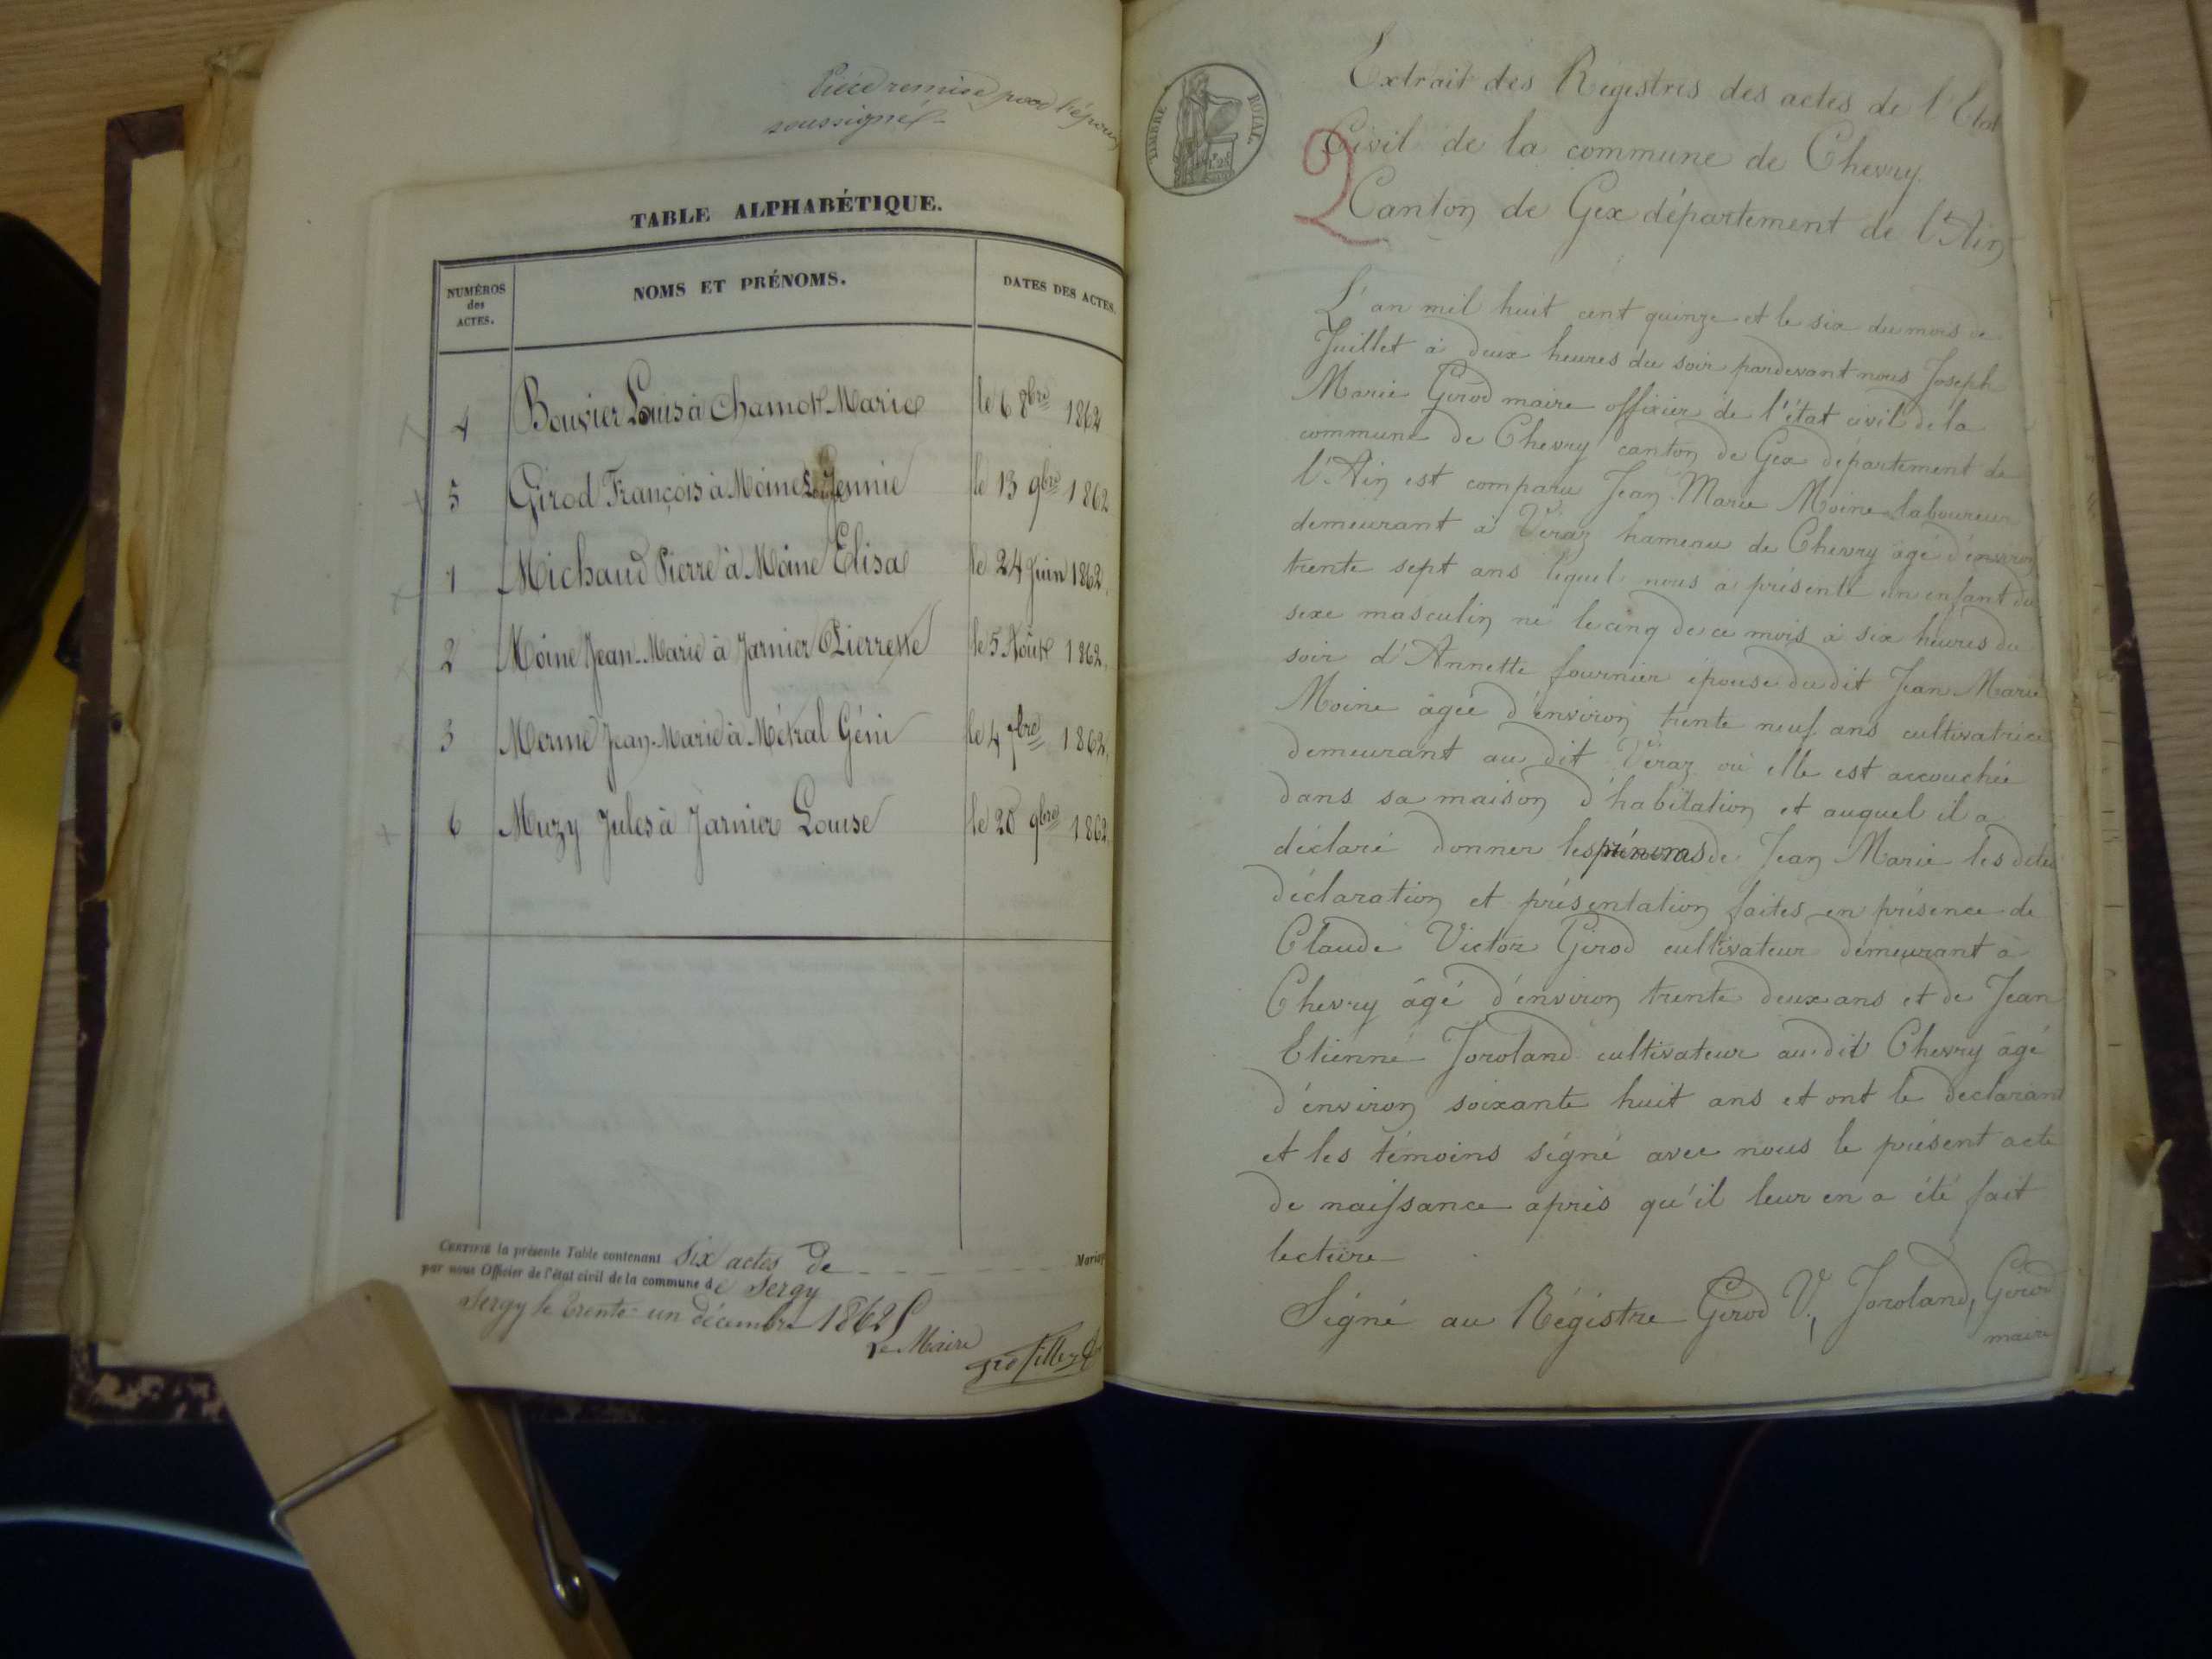 Pièce remise pour l'époux
soussigné
TABLE ALPHABÉTIQUE.
NUMÉROS des ACTES. NOMS ET PRÉNOMS. DATES DES ACTES.
4 Bouvier Louis à Chamot Marie le 6 8bre 1862
5 Girod François à Moine Jennie le 13 9bre 1862
1 Michaud Pierre à Moine Elisa le 24 Juin 1862.
2 Moine Jean-Marie à Jarnier Pierrette le 5 Août 1862.
3 Merme Jean-Marie à Métral Géni le 4 7bre 1862.
6 Muzy Jules à Jarnier Louise le 20 9bre 1862.
CERTIFIÉ la présente Table contenant six actes de Mariage
par nous Officier de l'état civil de la commune de Sergy
Sergy le trente-un décembre 1862
Le Maire
TIMBRE ROYAL
Extrait des Régistres des actes de l'Etat
Civil de la commune de Chevry
2
Canton de Gex département de l'Ain
L'an mil huit cent quinze et le six du mois de
Juillet à deux heures du soir pardevant nous Joseph
Marie Girod maire offixier de l'état civil de la
commune de Chevry canton de Gex département de
l'Ain est comparu Jean Marie Moine laboureur
demeurant à Véraz hameau de Chevry âgé d'environ
trente sept ans lequel nous a présenté un enfant du
sexe masculin né le cinq de ce mois à six heures du
soir d'Annette fournier épouse du dit Jean Marie
Moine âgée d'environ trente neuf ans cultivatrice
demeurant au dit Véraz où elle est accouchée
dans sa maison d'habitation et auquel il a
déclaré donner les prénoms de Jean Marie les dites
déclaration et présentation faites en présence de
Claude Victor Girod cultivateur demeurant à
Chevry âgé d'environ trente deux ans et de Jean
Etienne Joroland cultivateur au dit Chevry âgé
d'environ soixante huit ans et ont le declarant
et les témoins signé avec nous le présent acte
de naissance après qu'il leur en a été fait
lecture
Signé au Régistre Girod V, Joroland, Girod
maire